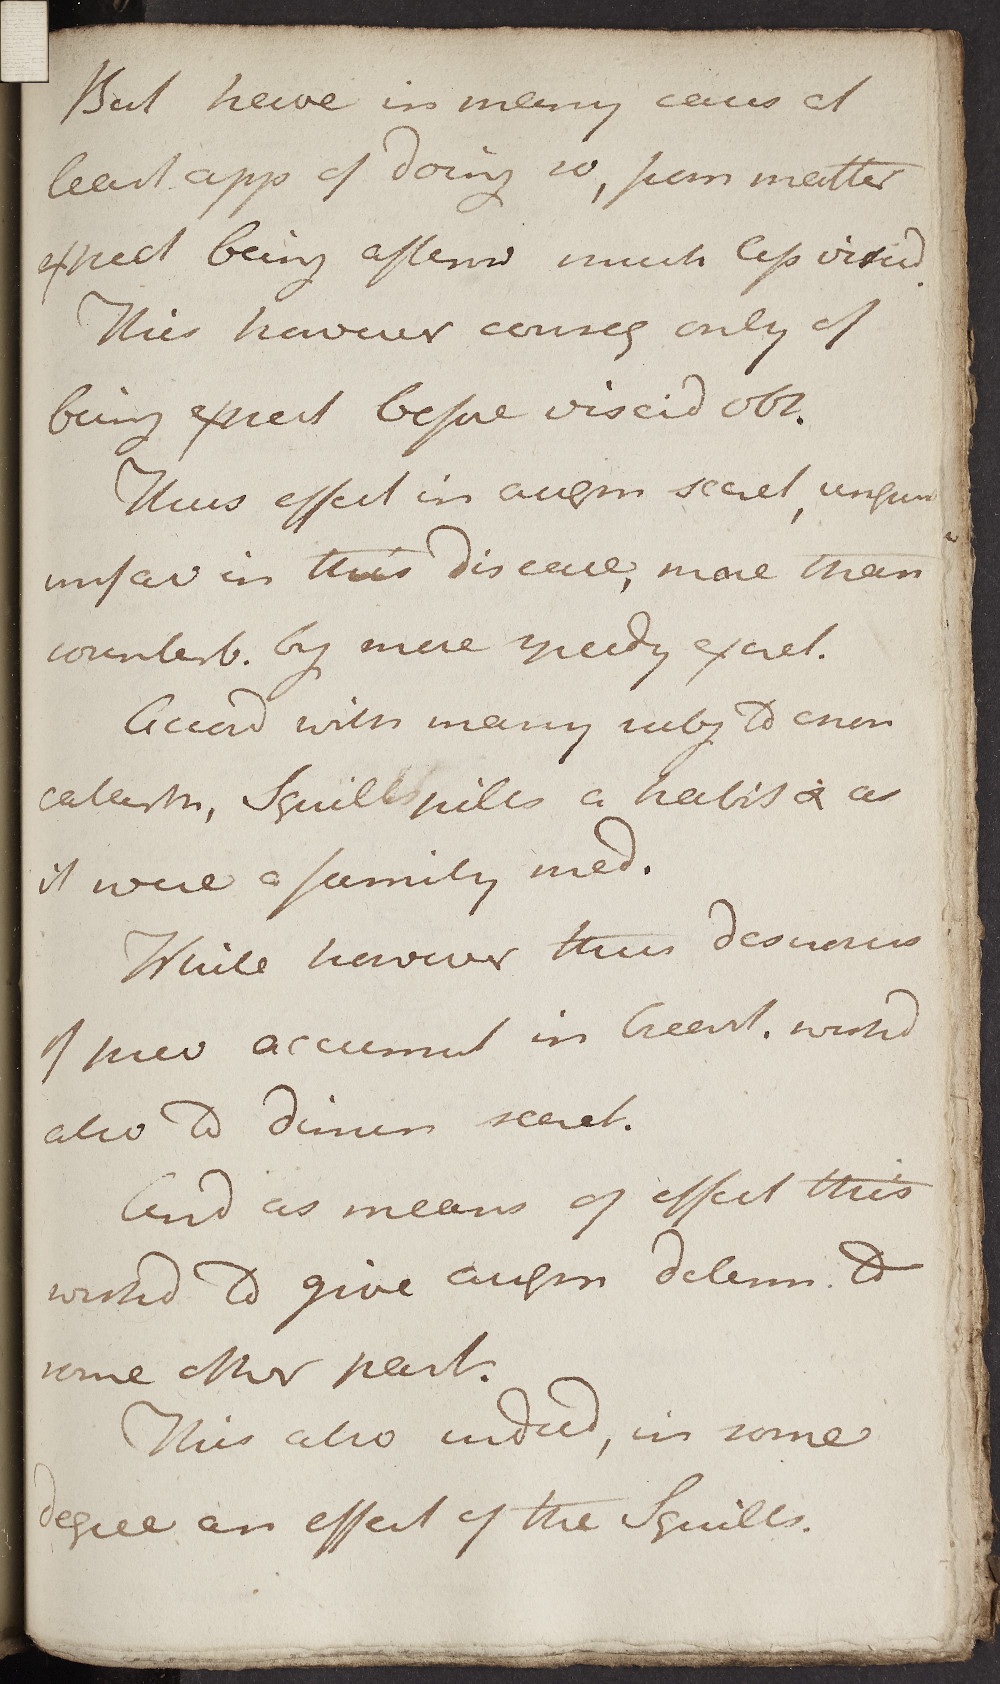 But have in many cases at
least app of doing so, from matter
expect being afterw much less viscid.
This however conseq only of
being expect before viscid obt.
Thus effect in augm secret,
unfav in this disease, more than
counterb. by more speedy excret.
Accord with many subj to chron
catarrh, Squill pills a habit & as
it were a family med.
While however thus desirous
of prev accumul in breast. wished
also to dimin secret.
And as means of effect this
wished to give augm determ. to
some other part.
This also indeed, in some
degree an effect of the Squills.